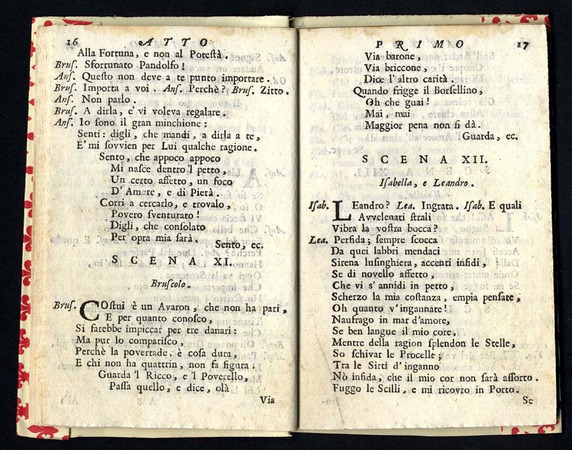 16 ATTO
Alla Fortuna, e non al Potestà.
Brus. Sfortunato Pandolfo!
Ans. Questo non deve a te punto importare.
Brus. Importa a voi. Ans. Perchè? Brus. Zitto.
Ans. Non parlo.
Brus. A dirla, e' vi voleva regalare.
Ans. Io sono il gran minchione:
Senti: digli, che mandi, a dirla a te,
E' mi sovvien per Lui qualche ragione.
Sento, che appoco appoco
Mi nasce dentro 'l petto,
Un certo affetto, un foco
D' Amore, e di Pietà.
Corri a cercarlo, e trovalo,
Povero sventurato!
Digli, che consolato
Per opra mia sarà.
Sento, ec.
SCENA XI.
Bruscolo.
Brus. COstui è un Avaron, che non ha pari,
E per quanto conosco,
Si farebbe impiccar per tre danari:
Ma pur lo compatisco,
Perchè la povertade, è cosa dura,
E chi non ha quattrin, non fa figura.
Guarda 'l Ricco, e 'l Poverello,
Passa quello, e dice, olà
Via
PRIMO 17
Via barone,
Via briccone,
Dice l'altro carità.
Quando frigge il Borsellino,
Oh che guai!
Mai, mai
Maggior pena non si dà.
Guarda, ec.
SCENA XII.
Isabella, e Leandro.
Isab. LEandro? Lea. Ingrata. Isab. E quali
Avvelenati strali
Vibra la vostra bocca?
Lea. Perfida; sempre scocca
Da quei labbri mendaci
Sirena lusinghiera, accenti infidi,
Se di novello affetto,
Che vi s'annidi in petto,
Scherzo la mia costanza, empia pensate,
Oh quanto v'ingannate!
Naufrago in mar d'amore,
Se ben langue il mio core,
Mentre della ragion splendon le Stelle,
So schivar le Procelle;
Tra le Sirti d'inganno
Nò infida, che il mio cor non sarà assorto.
Fuggo le Scilli, e mi ricovro in Porto.
Se